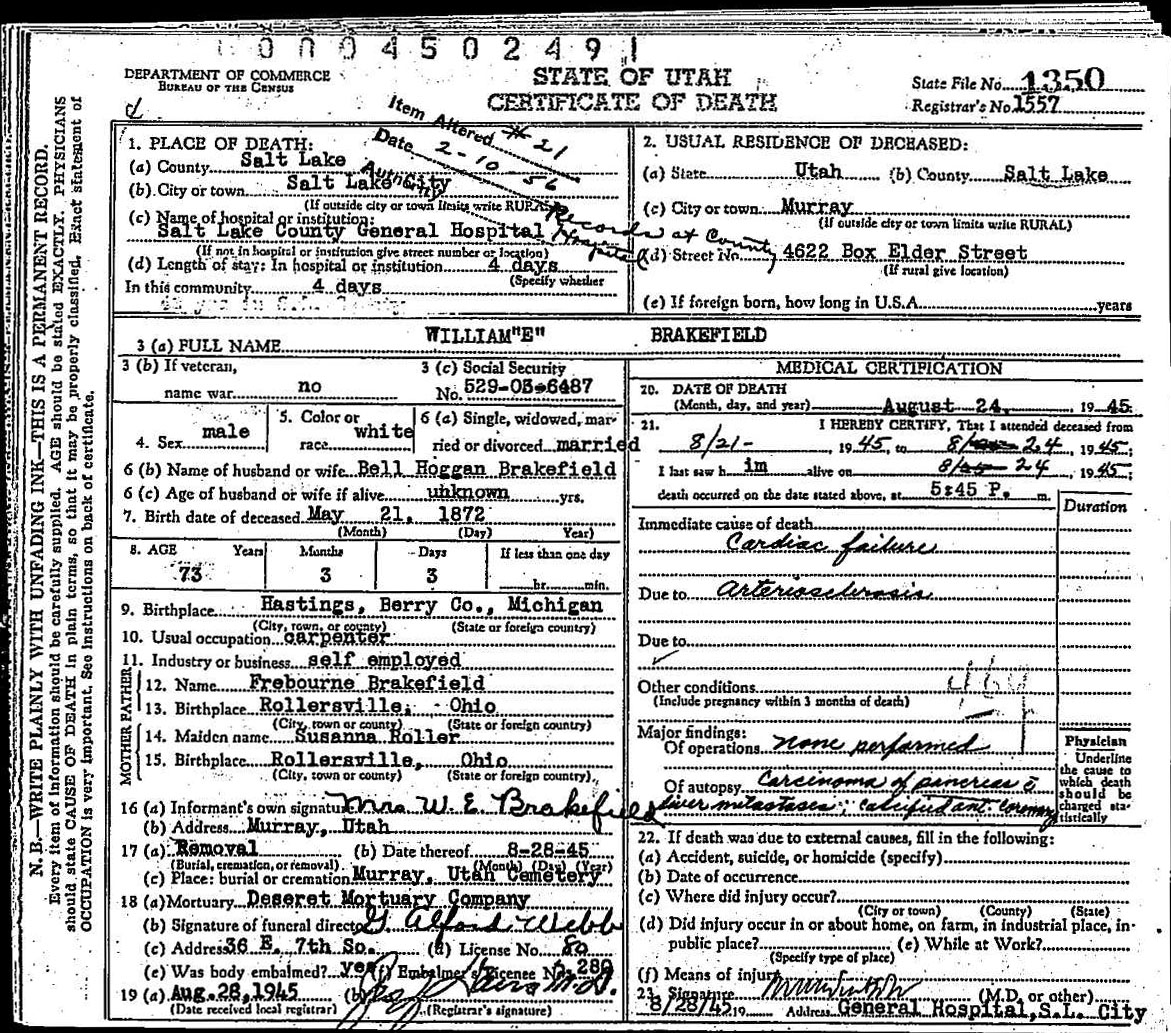 0004502491
DEPARTMENT OF COMMERCE
BUREAU OF THE CENSUS
STATE OF UTAH
CERTIFICATE OF DEATH
State File No. 1350
Registrar's No. 1557
Item Altered #21
Date 2-10-56
Authority Records at County Hospital
N. B.—WRITE PLAINLY WITH UNFADING INK—THIS IS A PERMANENT RECORD.
Every item of information should be carefully supplied. AGE should be stated EXACTLY. PHYSICIANS
should state CAUSE OF DEATH in plain terms, so that it may be properly classified. Exact statement of
OCCUPATION is very important. See instructions on back of certificate.
1. PLACE OF DEATH:
(a) County Salt Lake
(b) City or town Salt Lake City
(If outside city or town limits write RURAL)
(c) Name of hospital or institution:
Salt Lake County General Hospital
(If not in hospital or institution give street number or location)
(d) Length of stay: In hospital or institution 4 days
(Specify whether
In this community 4 days
2. USUAL RESIDENCE OF DECEASED:
(a) State Utah (b) County Salt Lake
(c) City or town Murray
(If outside city or town limits write RURAL)
(d) Street No. 4622 Box Elder Street
(If rural give location)
(e) If foreign born, how long in U.S.A. years
3 (a) FULL NAME WILLIAM "E" BRAKEFIELD
3 (b) If veteran,
name war no
3 (c) Social Security
No. 529-03-6487
4. Sex male
5. Color or
race white
6 (a) Single, widowed, mar-
ried or divorced married
6 (b) Name of husband or wife Bell Hoggan Brakefield
6 (c) Age of husband or wife if alive unknown yrs.
7. Birth date of deceased May 21, 1872
(Month) (Day) Year)
8. AGE Years Months Days If less than one day
73 3 3 hr. min.
9. Birthplace Hastings, Berry Co., Michigan
(City, town, or county) (State or foreign country)
10. Usual occupation carpenter
11. Industry or business self employed
FATHER
12. Name Frebourne Brakefield
13. Birthplace Rollersville, Ohio
(City, town or county) (State or foreign country)
MOTHER
14. Maiden name Susanna Roller
15. Birthplace Rollersville, Ohio
(City, town or county) (State or foreign country)
16 (a) Informant's own signature Mrs W. E. Brakefield
(b) Address Murray, Utah
17 (a) Removal (b) Date thereof 8-28-45
(Burial, cremation, or removal) (Month) (Day) (Year)
(c) Place: burial or cremation Murray, Utah Cemetery
18 (a) Mortuary Deseret Mortuary Company
(b) Signature of funeral director G. Alford Webb
(c) Address 36 E. 7th So. (d) License No. 80
(e) Was body embalmed? yes (f) Embalmer's License No. 280
19 (a) Aug. 28, 1945 (b)
(Date received local registrar) (Registrar's signature)
MEDICAL CERTIFICATION
20. DATE OF DEATH
(Month, day, and year) August 24, 1945
21. I HEREBY CERTIFY, That I attended deceased from
8/21- 1945, to 8/24, 1945;
I last saw him alive on 8/24, 1945;
death occurred on the date stated above, at 5:45 P. m.
Duration
Immediate cause of death
Cardiac failure
Due to Arteriosclerosis
Due to
Other conditions
(Include pregnancy within 3 months of death)
Major findings:
Of operations none performed
Of autopsy Carcinoma of pancreas c̄
liver metastases; calcified ant. coronary
Physician
Underline
the cause to
which death
should be
charged sta-
tistically
22. If death was due to external causes, fill in the following:
(a) Accident, suicide, or homicide (specify)
(b) Date of occurrence
(c) Where did injury occur?
(City or town) (County) (State)
(d) Did injury occur in or about home, on farm, in industrial place, in
public place? (e) While at Work?
(Specify type of place)
(f) Means of injury
23. Signature (M.D. or other)
8/28/45 19 Address General Hospital, S.L. City